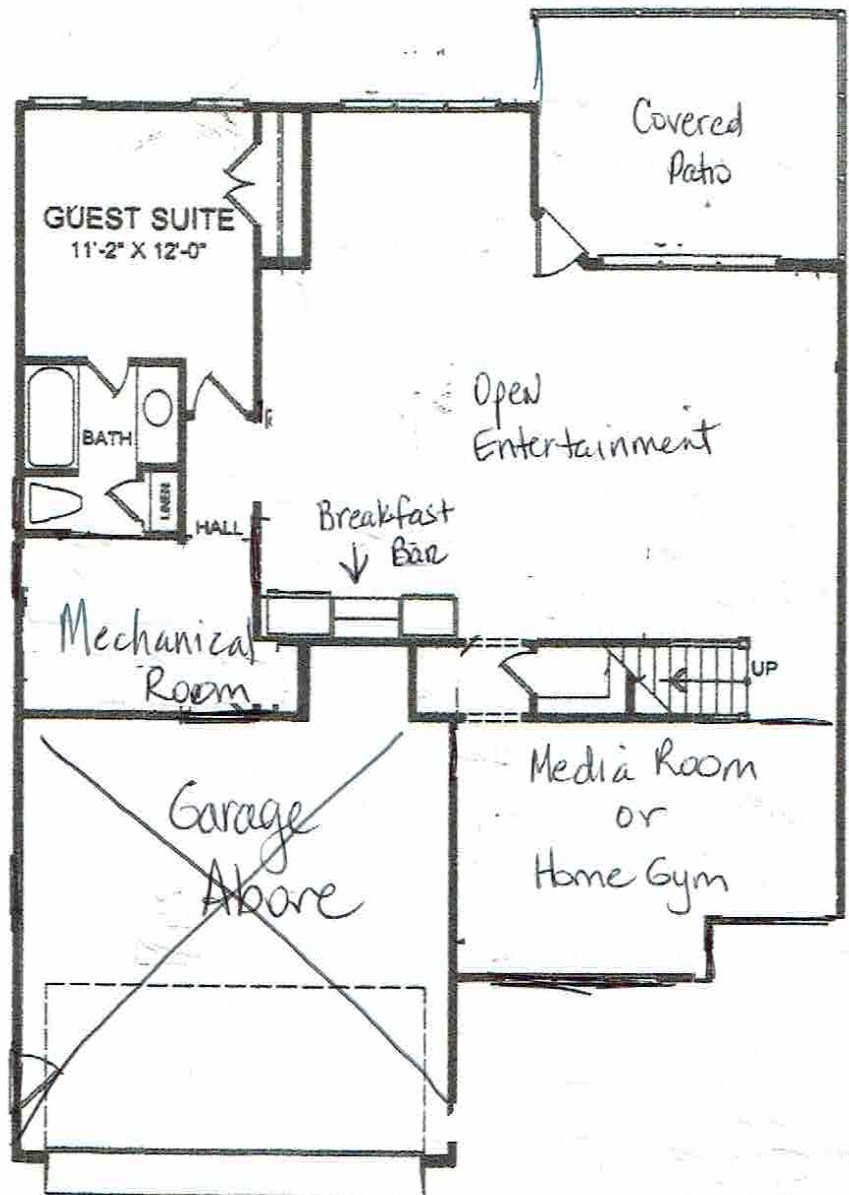 Covered
Patio
GUEST SUITE
11'-2" X 12'-0"
Open
Entertainment
BATH
LINEN
HALL
Breakfast
Bar
Mechanical
Room
UP
Media Room
or
Home Gym
Garage
Above